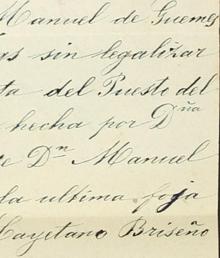 Manuel de Guemes
sin legalizar
ta del Puesto del
hecha por Dña
e Dn Manuel
la ultima foja
Cayetano Briseño